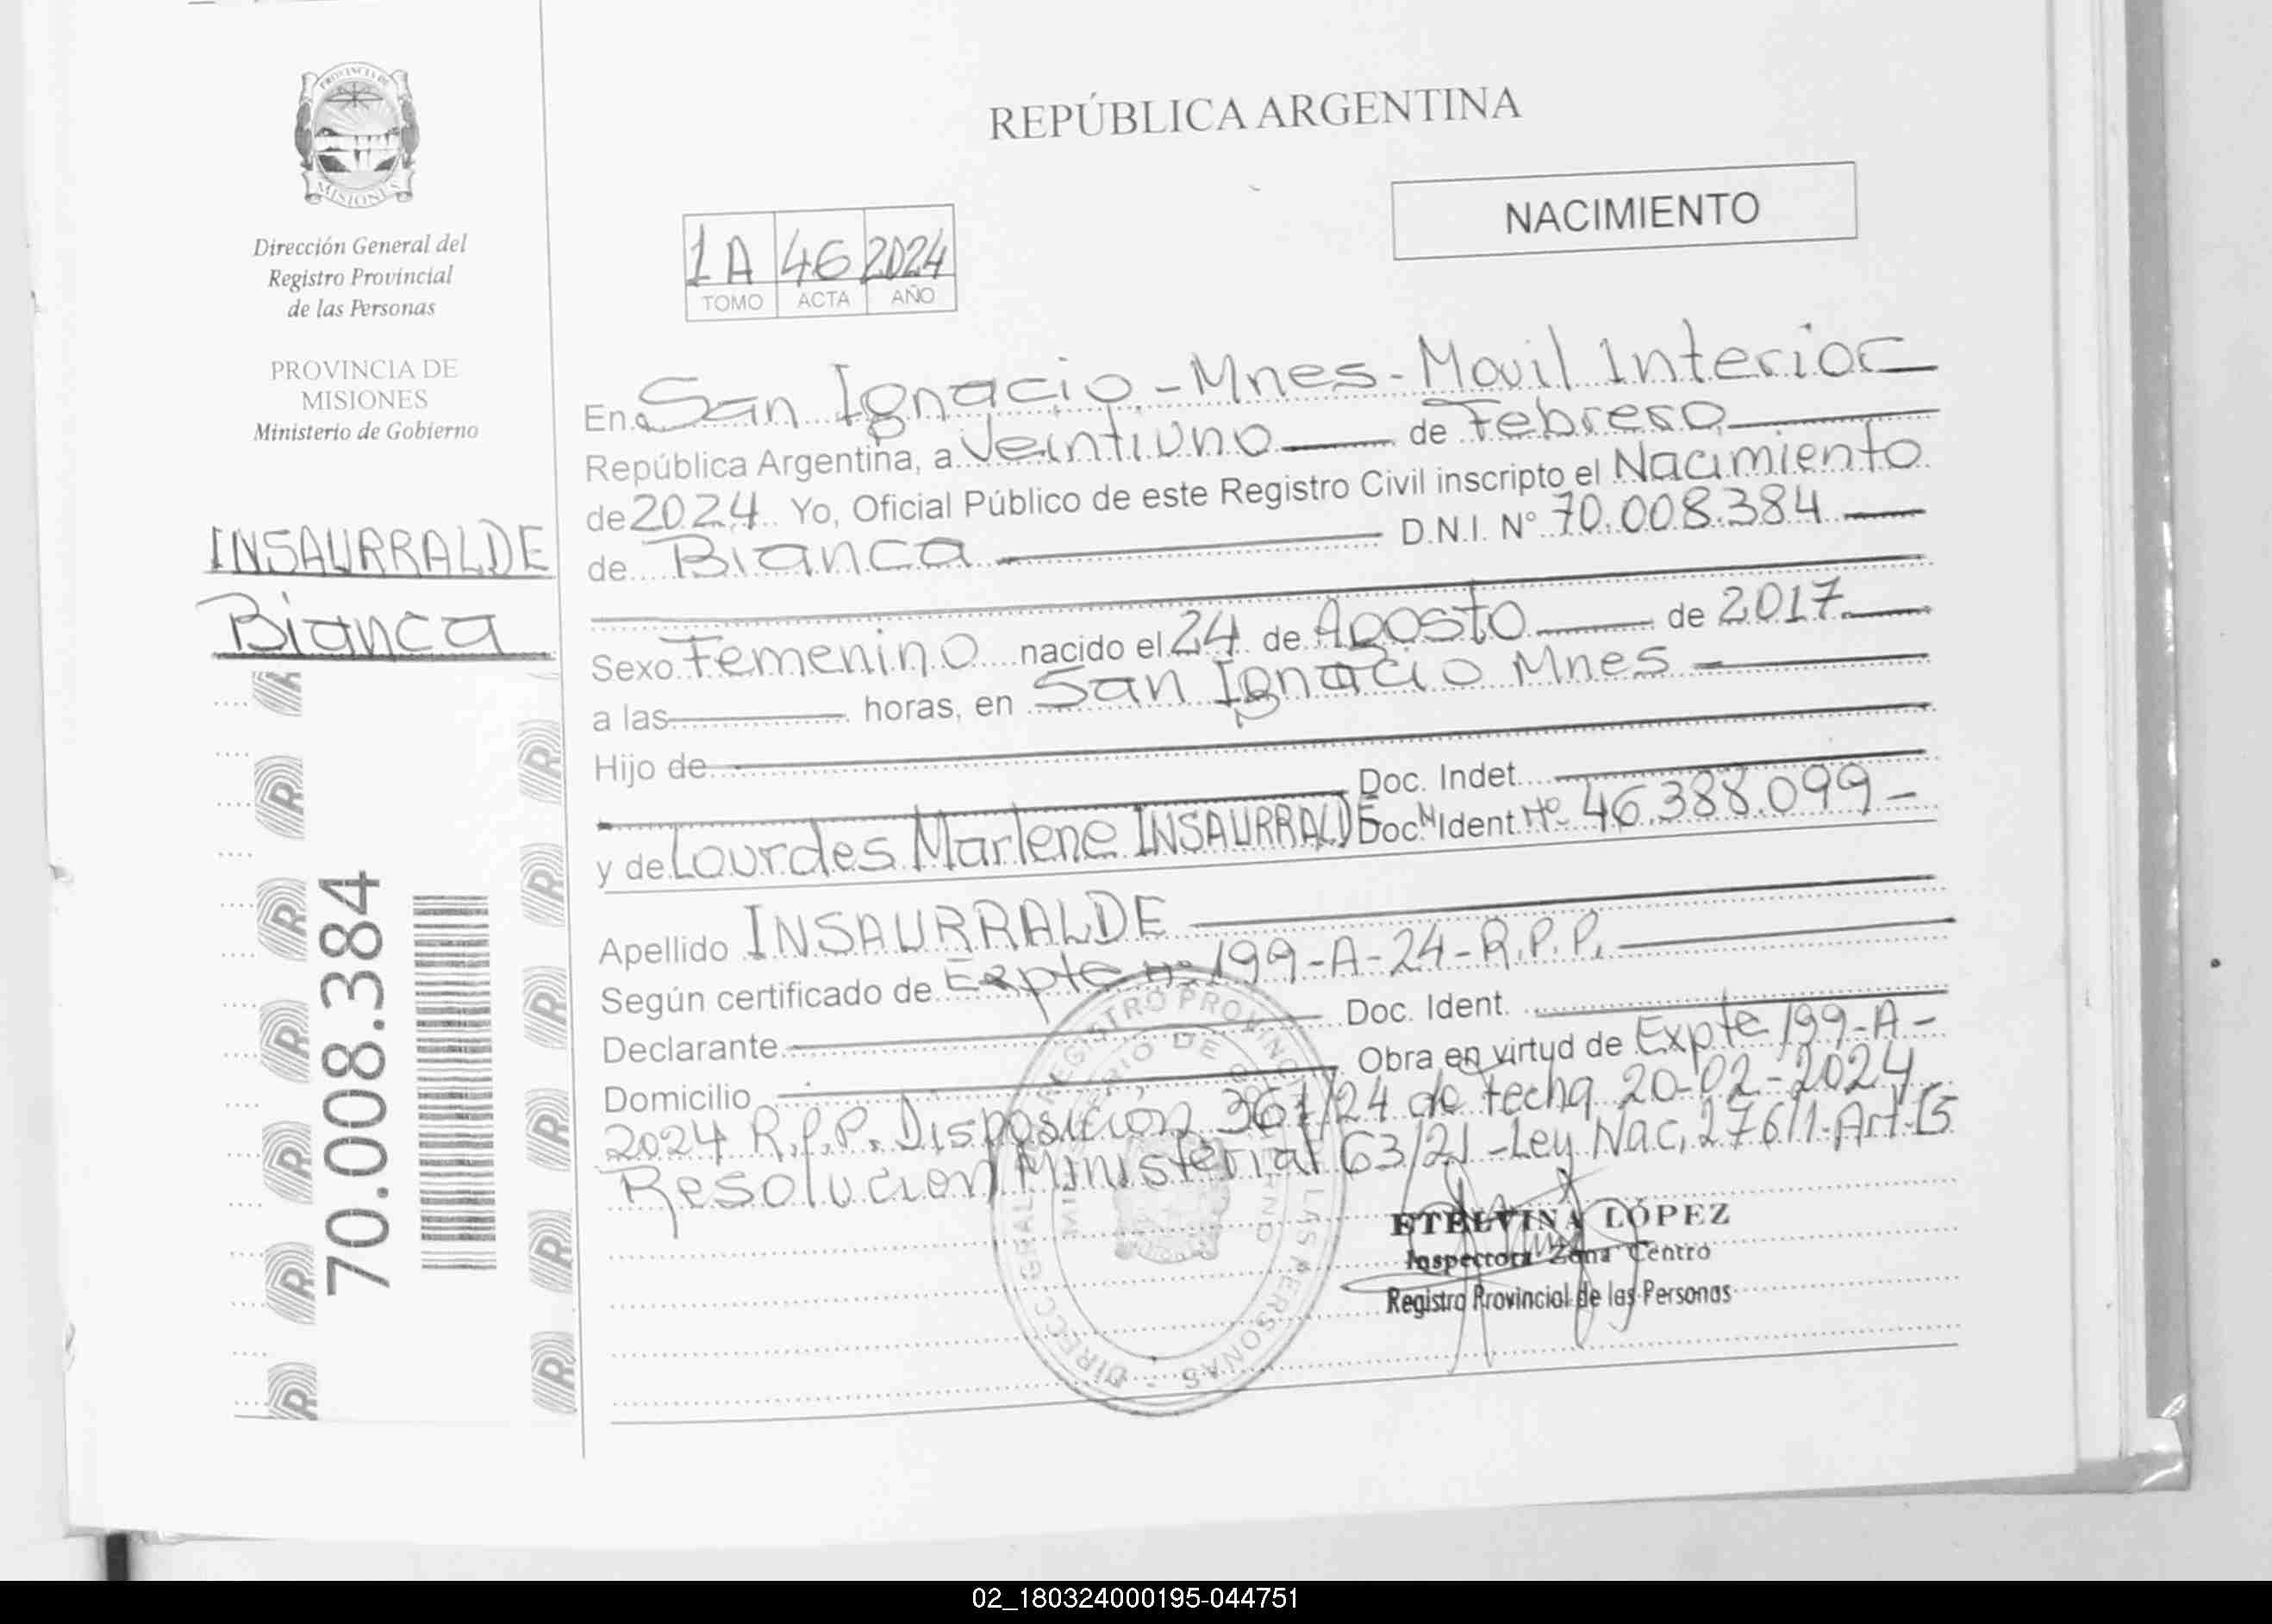 PROVINCIA DE
MISIONES
Dirección General del
Registro Provincial
de las Personas
PROVINCIA DE
MISIONES
Ministerio de Gobierno
INSAURRALDE
Bianca
70.008.384
REPÚBLICA ARGENTINA
NACIMIENTO
1A 46 2024
TOMO ACTA AÑO
En San Ignacio - Mnes - Movil Interior
República Argentina, a Veintiuno de Febrero
de 2024 Yo, Oficial Público de este Registro Civil inscripto el Nacimiento
de Bianca D.N.I. N° 70.008.384
Sexo Femenino nacido el 24 de Agosto de 2017
a las horas, en San Ignacio Mnes
Hijo de
Doc. Indet.
y de Lourdes Marlene INSAURRALDE Doc. Ident N° 46.388.099-
Apellido INSAURRALDE
Según certificado de Expte N° 199-A-24-R.P.P.
Declarante Doc. Ident.
Domicilio Obra en virtud de Expte 199-A-
2024 R.P.P. Disposición 361/24 de fecha 20-02-2024
Resolucion Ministerial 63/21 - Ley Nac. 27611- Art.
DIRECC. GRAL REGISTRO PROVINC LAS PERSONAS
ETELVINA LÓPEZ
Inspectora Zona Centro
Registro Provincial de las Personas
02_180324000195-044751